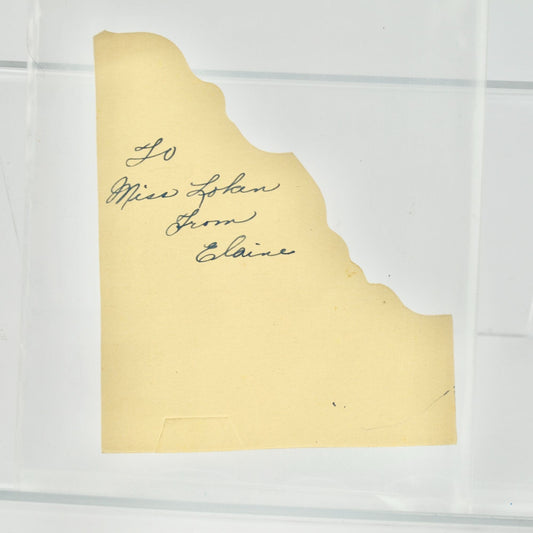 To
Miss Loken
From
Elaine